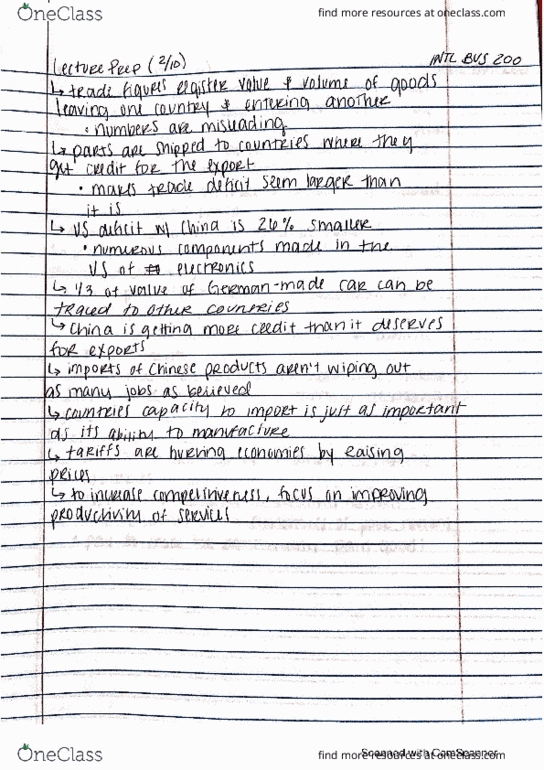 OneClass
find more resources at oneclass.com
Lecture Prep (2/10)
INTL BUS 200
↳ trade figures register value & volume of goods
leaving one country & entering another
• numbers are misleading
↳ parts are shipped to countries where they
get credit for the export
• makes trade deficit seem larger than
it is
↳ US deficit w/ China is 26% smaller
• numerous components made in the
US of electronics
↳ 1/3 of value of German-made car can be
traced to other countries
↳ China is getting more credit than it deserves
for exports
↳ imports of Chinese products aren't wiping out
as many jobs as believed
↳ countries capacity to import is just as important
as its ability to manufacture
↳ tariffs are hurting economies by raising
prices
↳ to increase competitiveness, focus on improving
productivity of services
OneClass
find more resources at oneclass.com
Scanned with CamScanner